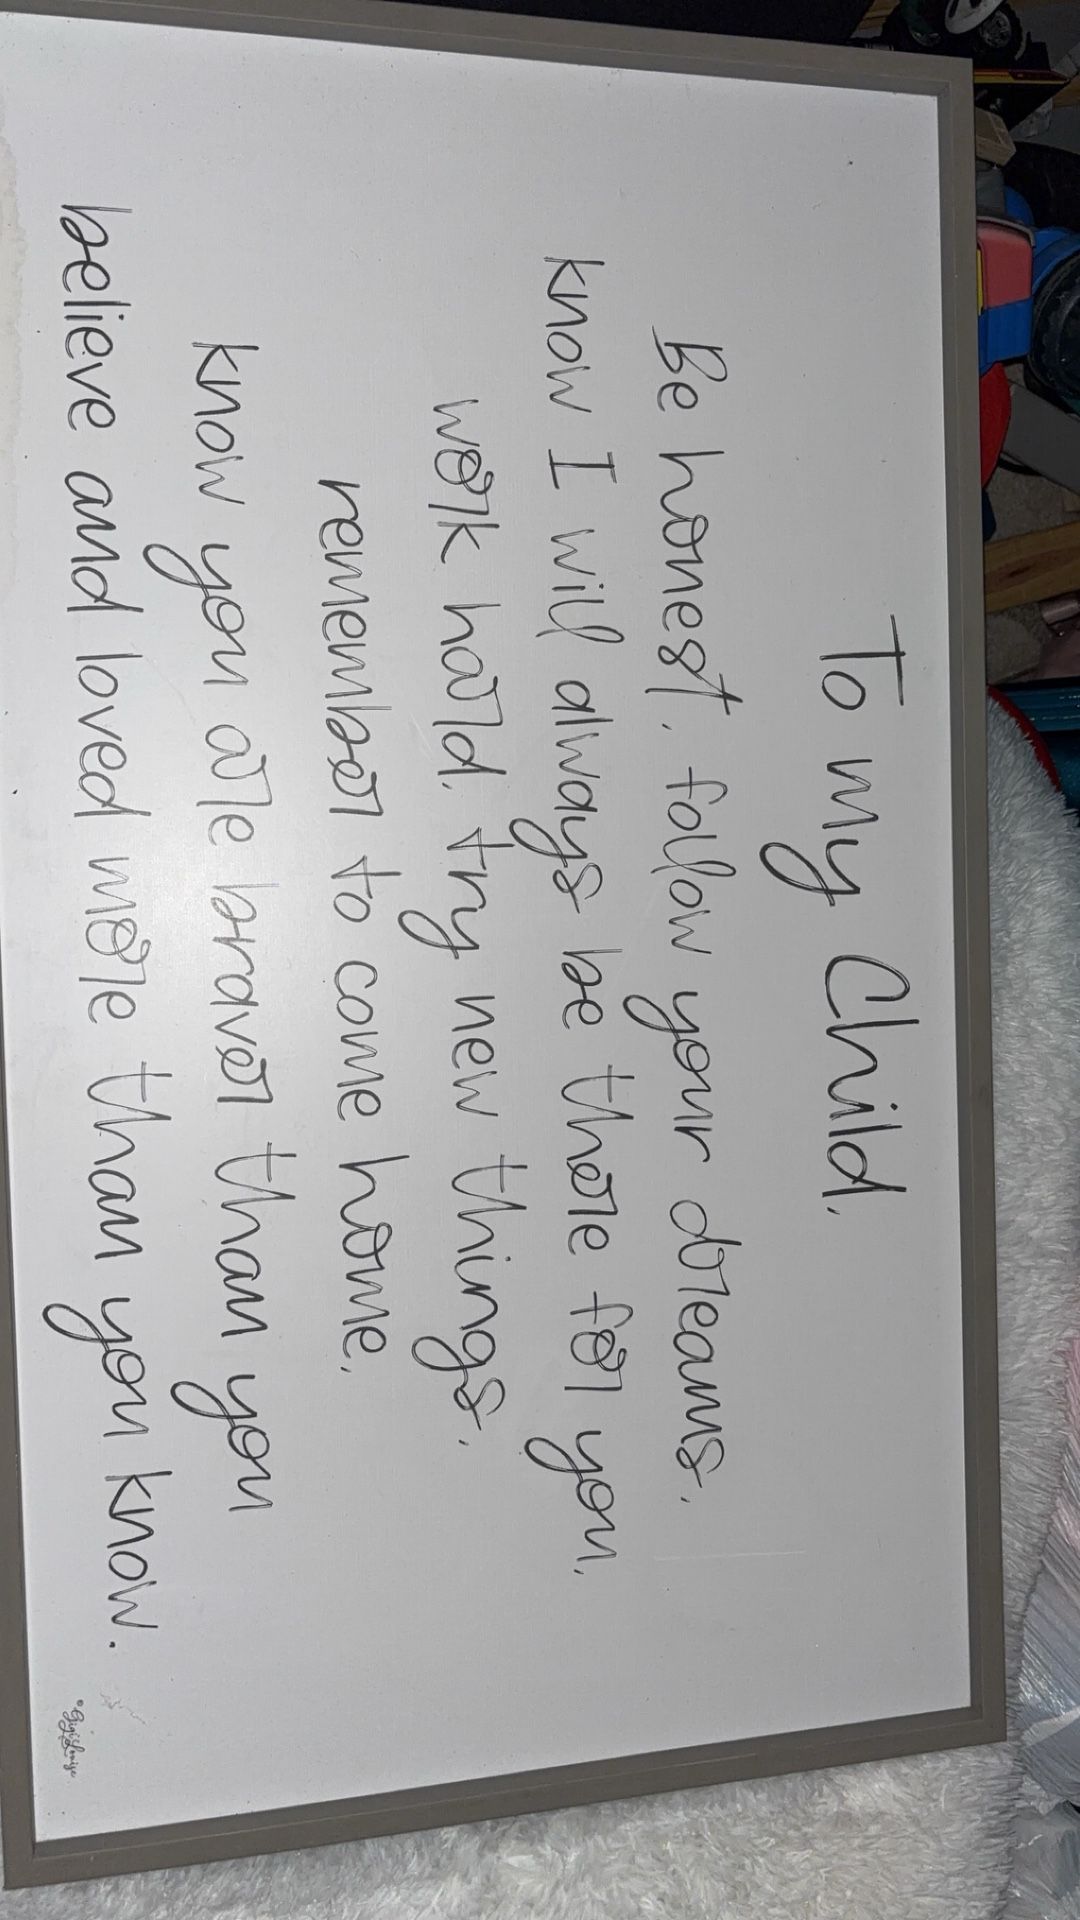 To my Child,
Be honest, follow your dreams,
know I will always be there for you,
work hard, try new things,
remember to come home,
know you are braver than you
believe and loved more than you know.
©Gigi Louise